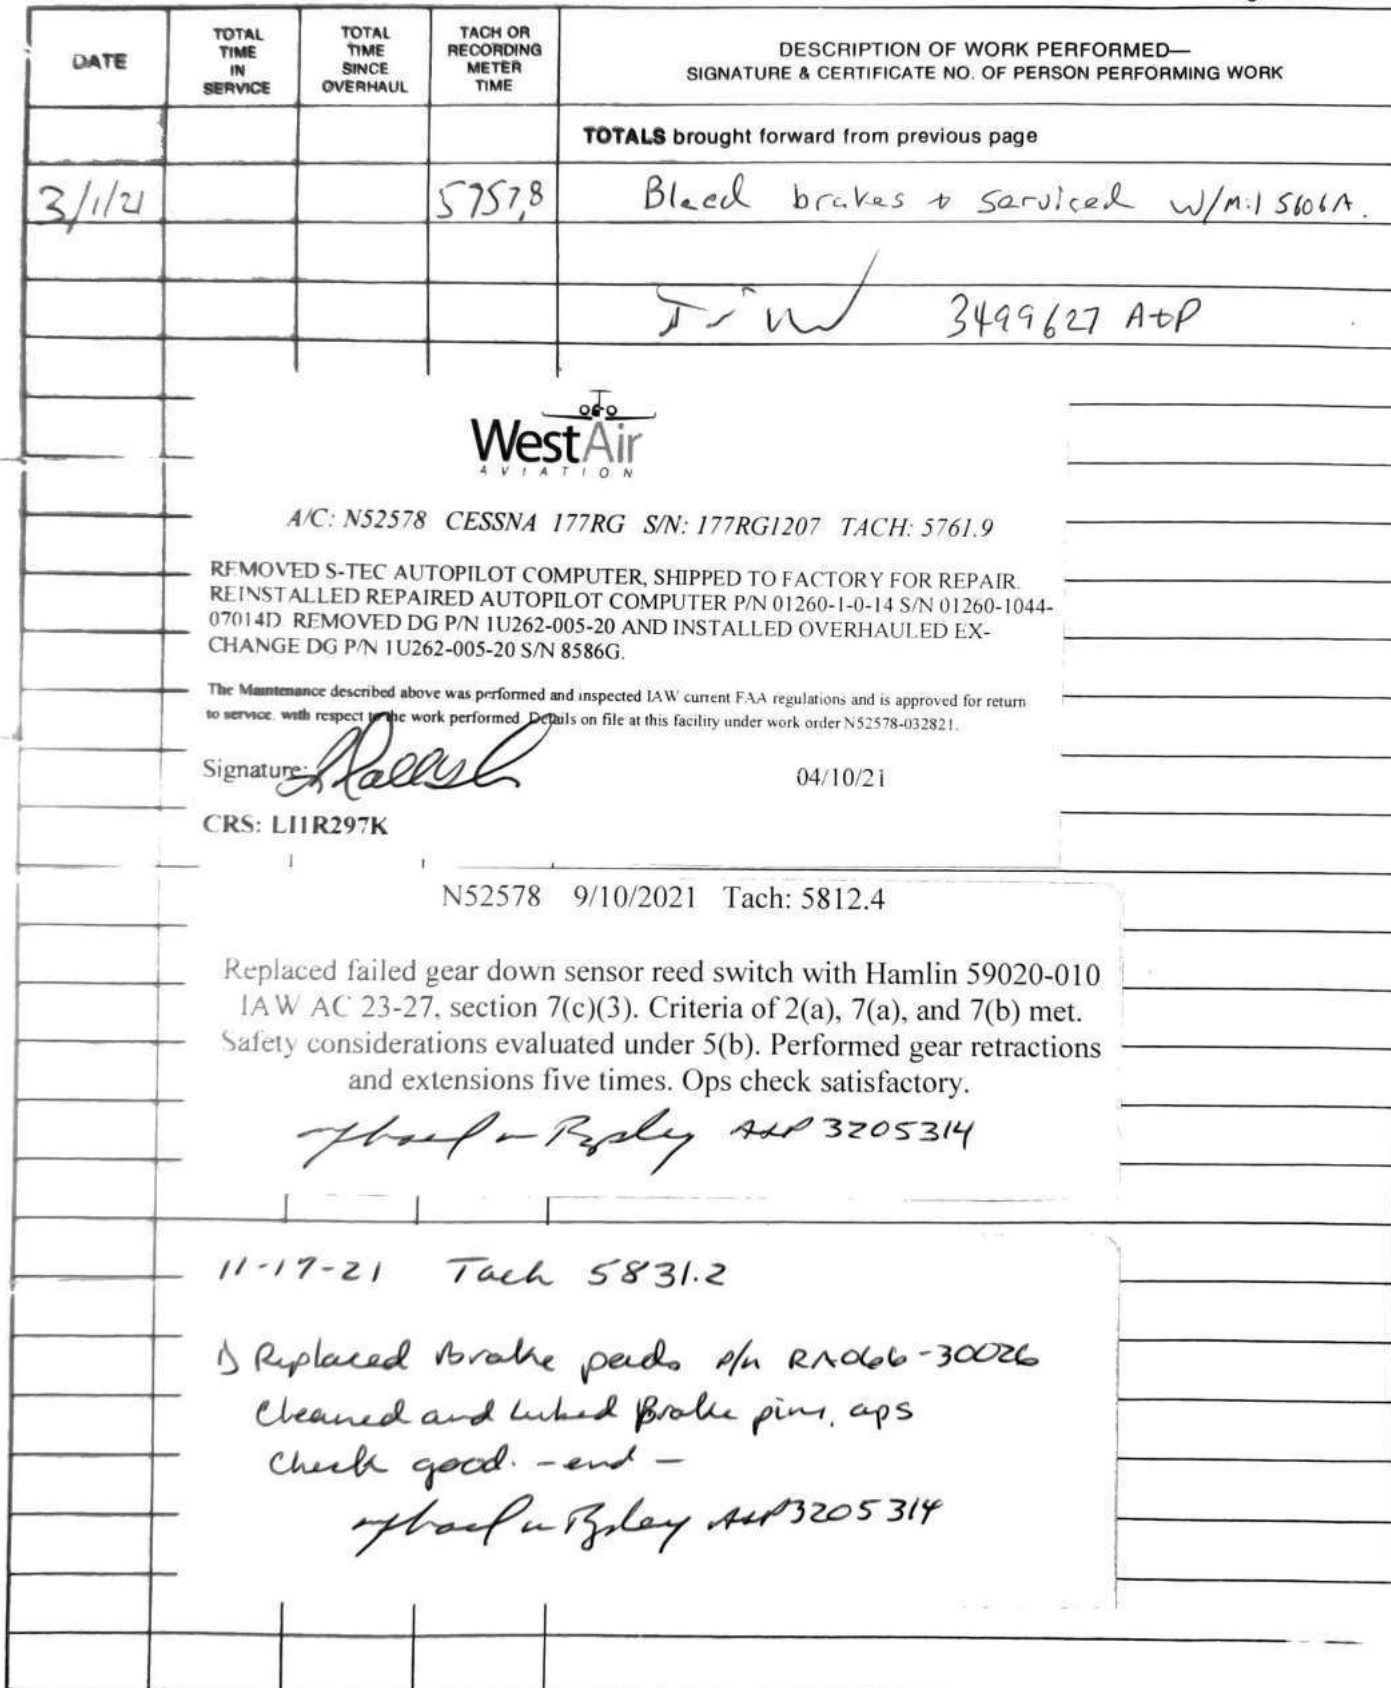 DATE
TOTAL
TIME
IN
SERVICE
TOTAL
TIME
SINCE
OVERHAUL
TACH OR
RECORDING
METER
TIME
DESCRIPTION OF WORK PERFORMED—
SIGNATURE & CERTIFICATE NO. OF PERSON PERFORMING WORK
TOTALS brought forward from previous page
3/1/21 5757.8 Bleed brakes & serviced W/Mil 5606A.
3499627 A&P
WestAir
AVIATION
A/C: N52578 CESSNA 177RG S/N: 177RG1207 TACH: 5761.9
REMOVED S-TEC AUTOPILOT COMPUTER, SHIPPED TO FACTORY FOR REPAIR.
REINSTALLED REPAIRED AUTOPILOT COMPUTER P/N 01260-1-0-14 S/N 01260-1044-
07014D. REMOVED DG P/N 1U262-005-20 AND INSTALLED OVERHAULED EX-
CHANGE DG P/N 1U262-005-20 S/N 8586G.
The Maintenance described above was performed and inspected IAW current FAA regulations and is approved for return
to service. with respect to the work performed. Details on file at this facility under work order N52578-032821.
Signature: 04/10/21
CRS: LI1R297K
N52578 9/10/2021 Tach: 5812.4
Replaced failed gear down sensor reed switch with Hamlin 59020-010
IAW AC 23-27, section 7(c)(3). Criteria of 2(a), 7(a), and 7(b) met.
Safety considerations evaluated under 5(b). Performed gear retractions
and extensions five times. Ops check satisfactory.
A&P 3205314
11-17-21 Tach 5831.2
1) Replaced Brake pads P/n RA066-30026
Cleaned and lubed Brake pins, ops
Check good. -end-
A&P 3205314